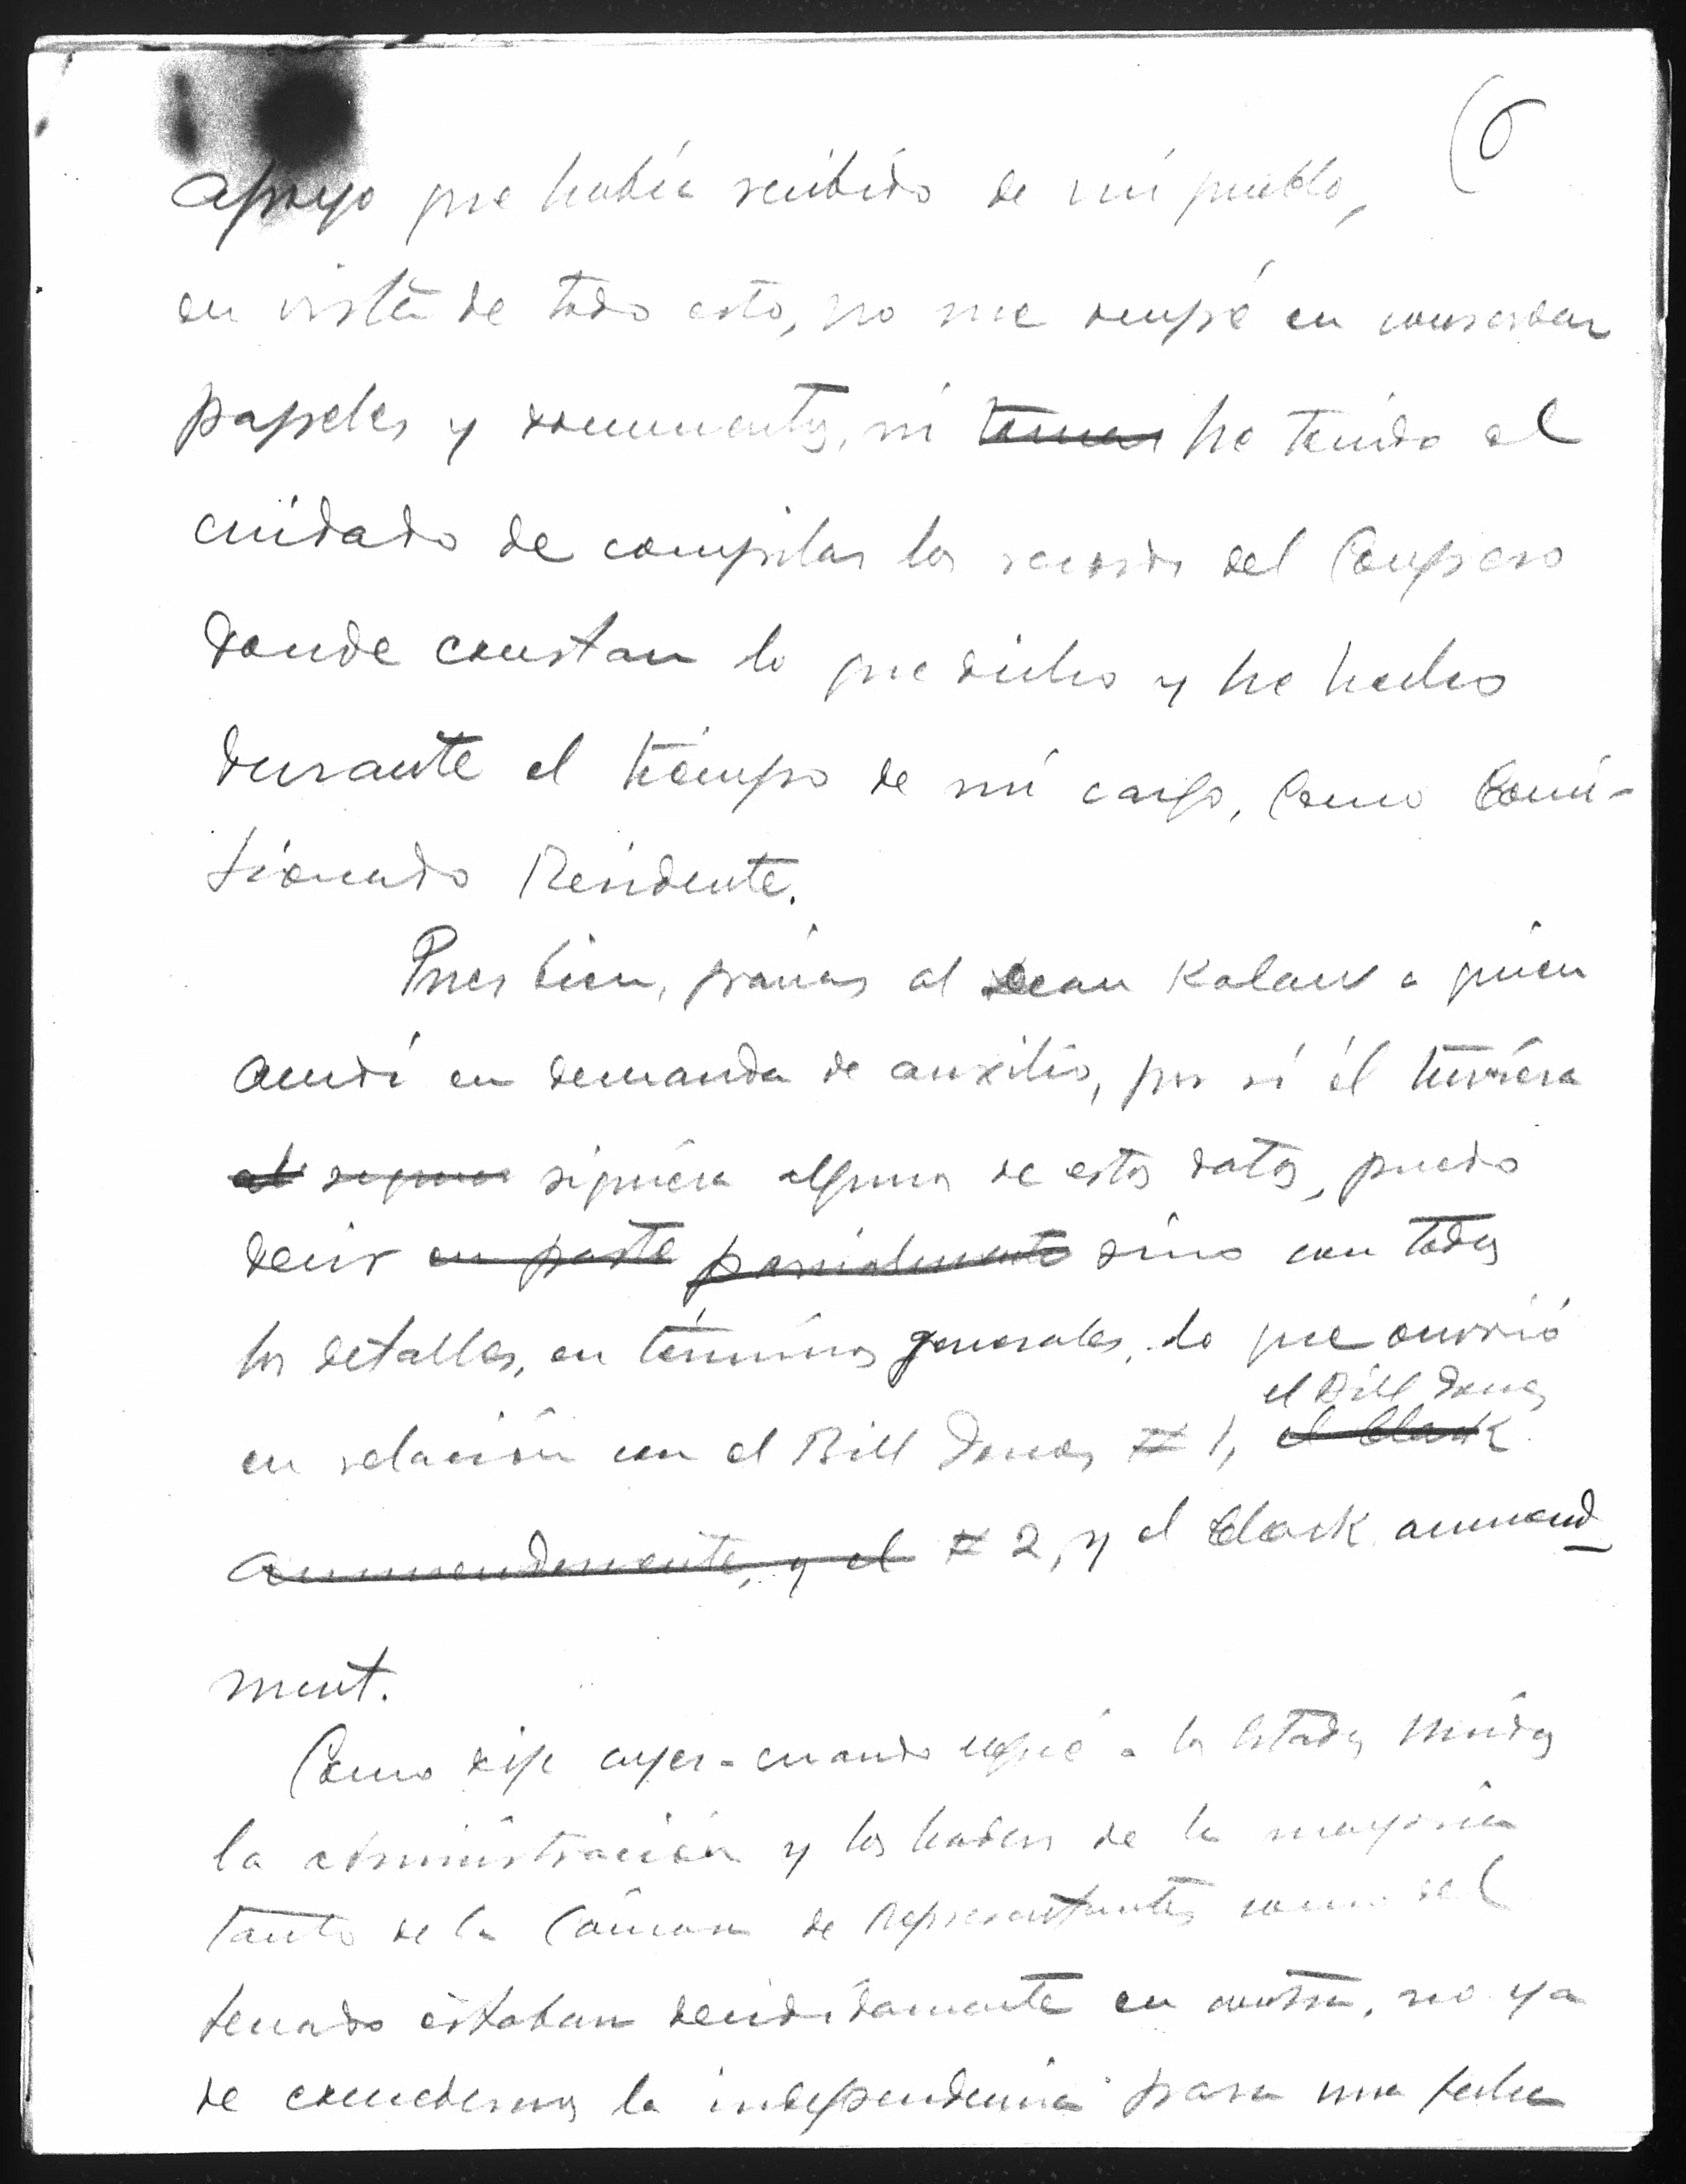 (6
apoyo que había recibido de mi pueblo,
en vista de todo esto, no me ocupé en conservar
papeles y documentos, ni he tenido el
cuidado de compilar los records del Congreso
donde constan lo que dicho y he hecho
durante el tiempo de mi cargo, como Comi-
sionado Residente.
Pues bien, gracias al Dean Kalaw a quien
acudí en demanda de auxilio, por si él tuviera
siquiera algunos de estos datos, puedo
decir en parte parcialmente sino con todos
los detalles, en términos generales, lo que ocurrió
el Bill Jones
en relación con el Bill Jones # 1, el Clark
ammendemente, y el # 2, y el Clark ammend
ment.
Como dije ayer - cuando llegué a los Estados Unidos
la administración y los leaders de la mayoría
tanto de la Cámara de Representantes como del
Senado estaban decididamente en contra, no ya
de concedernos la independencia para una fecha